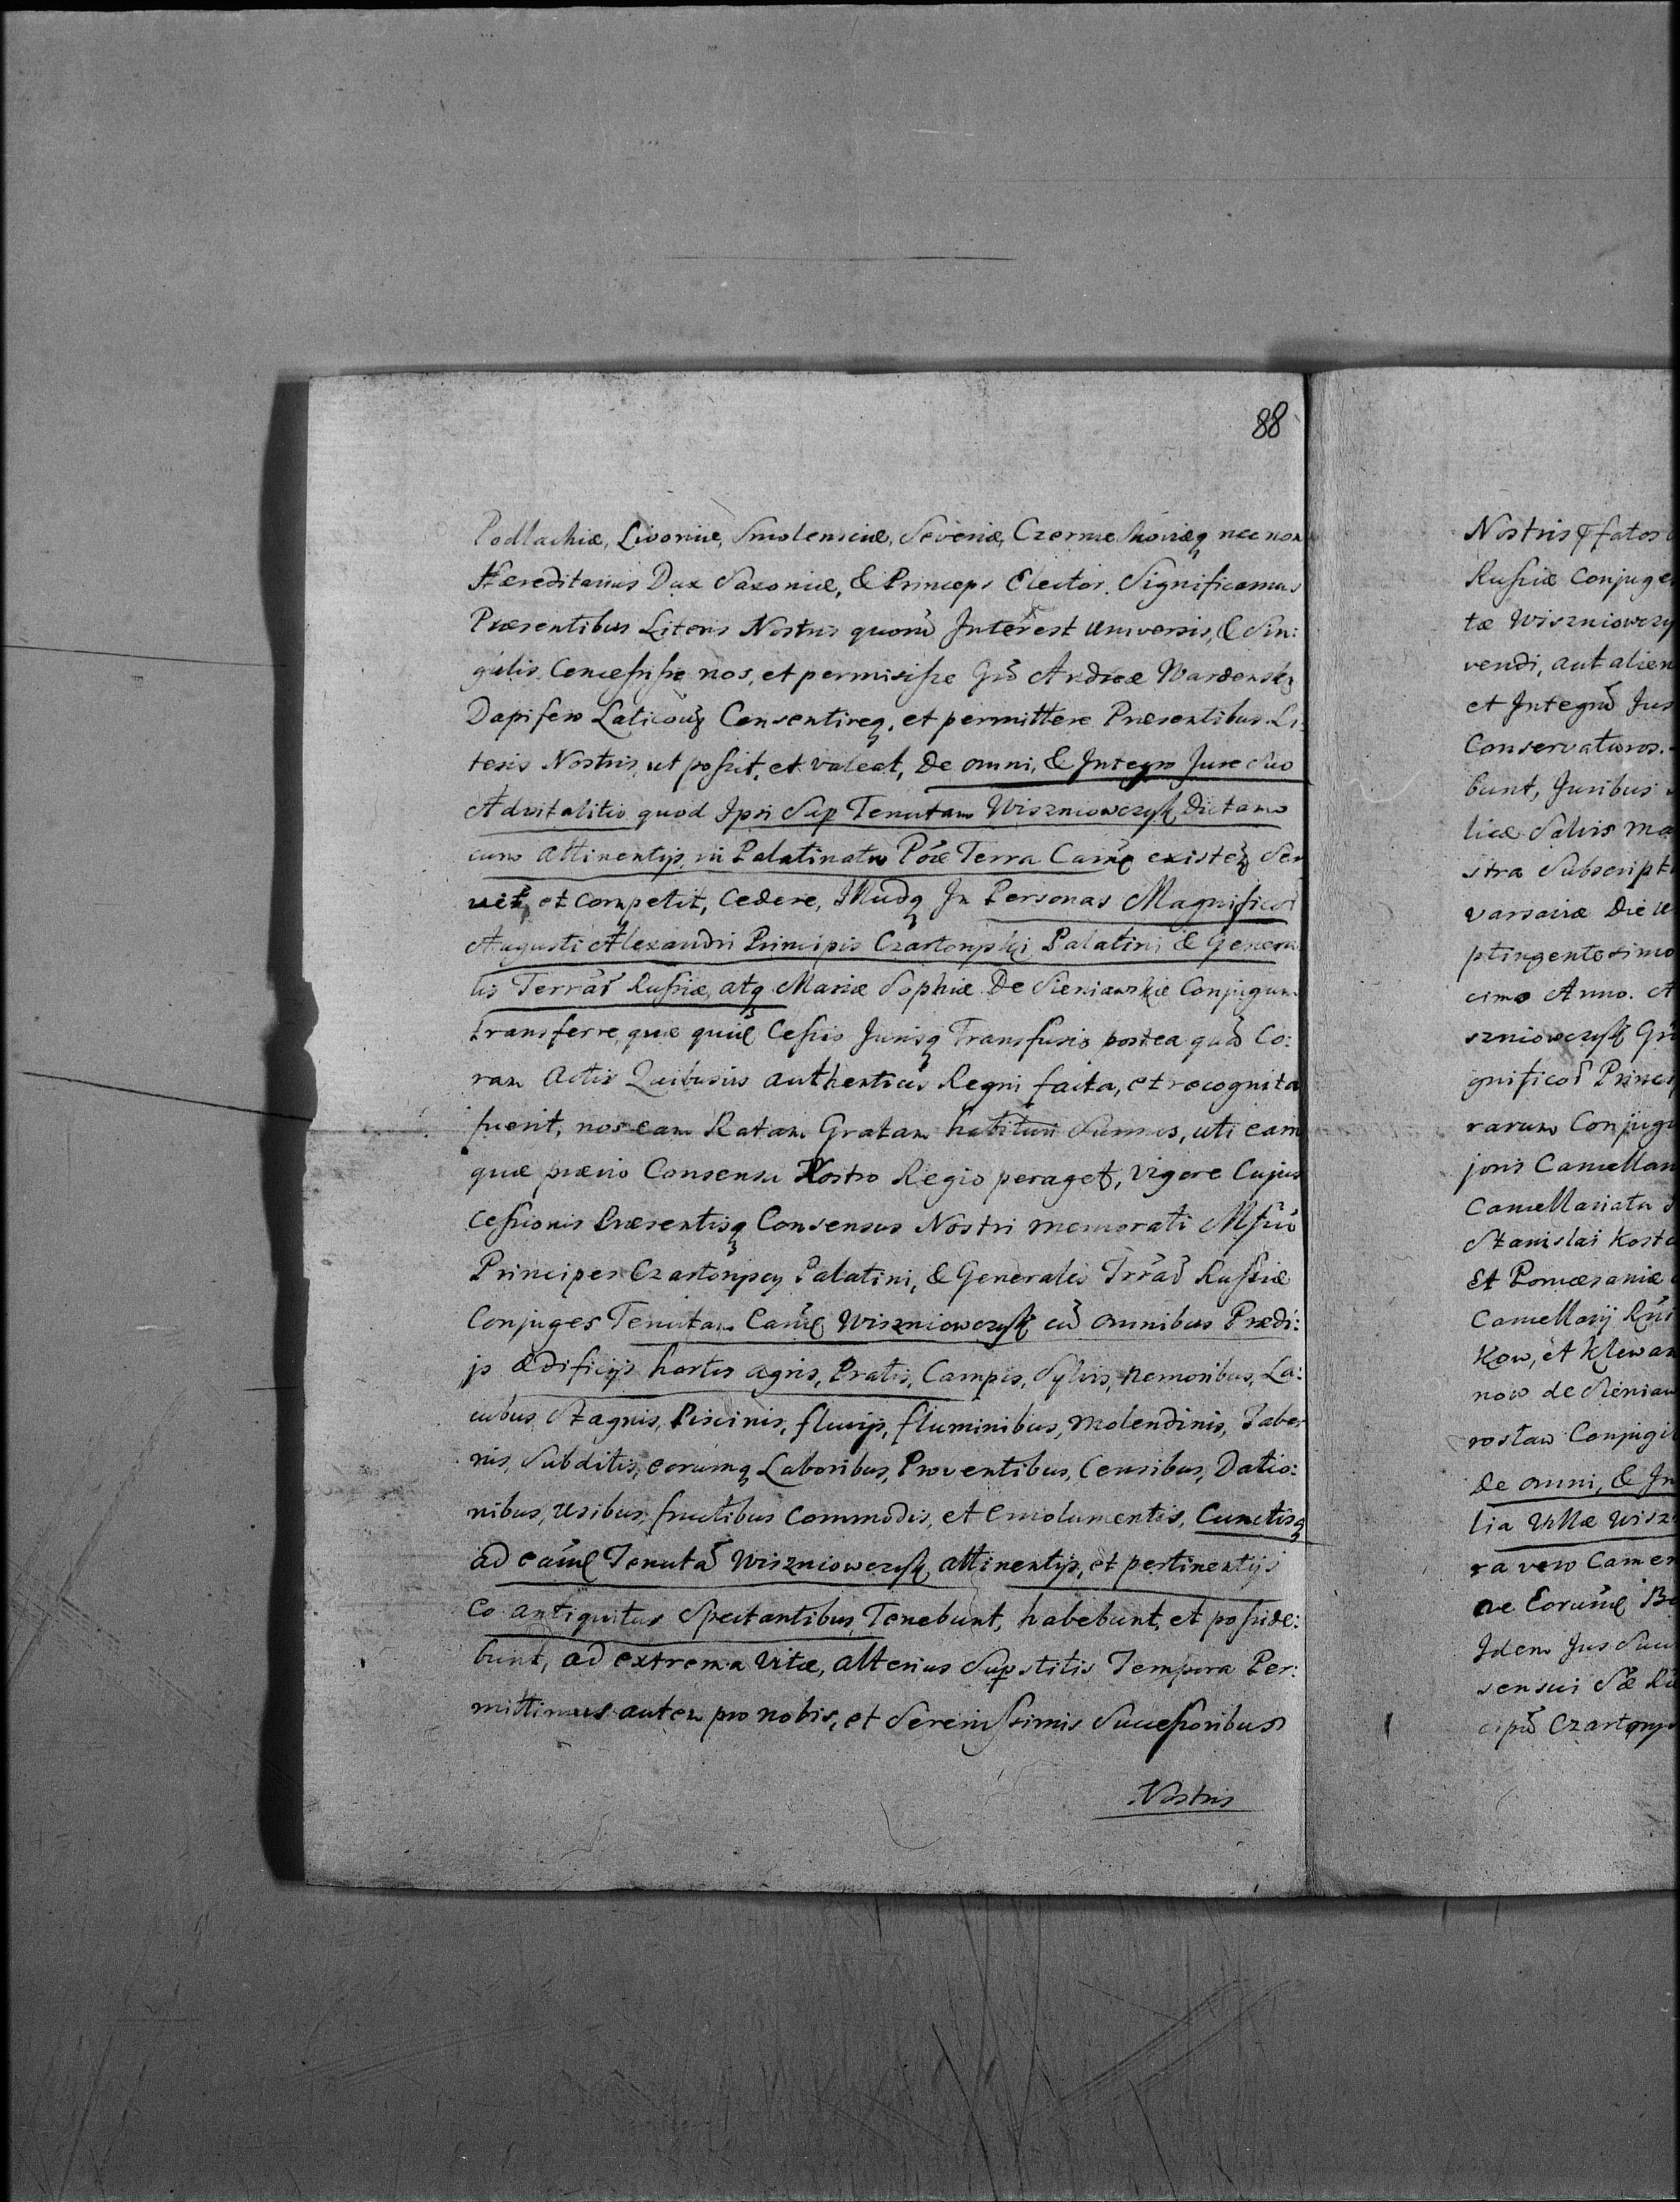 88
Podlachiæ, Livoniæ, Smolensciæ, Severiæ, Czerniechoviæq nec non
Hæreditarius Dux Saxoniæ, & Princeps Elector. Significamus
Præsentibus Literis Nostris quorũ Interest Universis, & Sin:
gulis, Concessisse nos, et permisisse Gñõ Andreæ Wardensk
Dapifero Laticoũ Consentireq, et permittere Præsentibus Li:
teris Nostris, ut possit, et valeat, De omni, & Integro Jure Suo
Advitalitio quod Ipsi Sup Tenutam Wiszniowczyk Dictam
cum attinentijs, in Palatinatu Terra existeñ Ser
vit, et competit, Cedere, Illudq In Personas Magnificor
Augusti Alexandri Principis Czartoryski Palatini & Genera
lis Terrar Russiæ, atq Mariæ Sophiæ De Sieniawskie Conjugum
transferre, quæ quid Cessio Jurisq Transfusio postea quã Co:
ram Actis Quibusvis authenticis Regni facta, et recognita
fuerit, nos eam Ratam Gratam habituri Sumus, uti eam
quæ prævio Consensu Nostro Regio peraget, vigore Cujus
Cessionis Præsentisq Consensus Nostri memorati
Principes Czartoryscy Palatini, & Generales Trrar Russiæ
Conjuges Tenutam Wiszniowczyk cũ omnibus Prædi:
js ædificijs hortis agris, Pratis, Campis, Sylvis, nemoribus, La:
cubus, Stagnis, Piscinis, fluvijs, fluminibus, molendinis, Taber
nis, Subditis, eorumq Laboribus, Proventibus, Censibus, Datio:
nibus, usibus, fructibus Commodis, et Emolumentis, Cunctisq
ad Tenutã Wiszniowczyk attinentijs, et pertinentijs
Co antiquitus Spectantibus, Tenebunt, habebunt, et posside:
bunt, ad extrema Vitæ, alterius Supstitis Tempora Per:
mittimus autem pro nobis, et Serenissimis Successoribus
Nostris
Nostris pfatos
Russiæ Conjuges
tæ Wiszniowczy
vendi, aut alien
et Integrũ Jus
Conservaturos.
bunt, Juribus
licæ Salvis Ma
stra Subscript
Varsaviæ Die
ptingentesimo
cimo Anno.
szniowczyk
gnificor Princ
rarum Conjugu
joris Cancellar
Cancellariatu
Stanislai Kostk
Et Pomæsaniæ
Cancellarij
Kow, et Klewan
now de Sieniaw
rosław Conjugi
De omni, & In
lia Villæ Wisz
ra vero Camer
ae
Idem Jus Suu
sensui Sæ
cipũ Czartorys